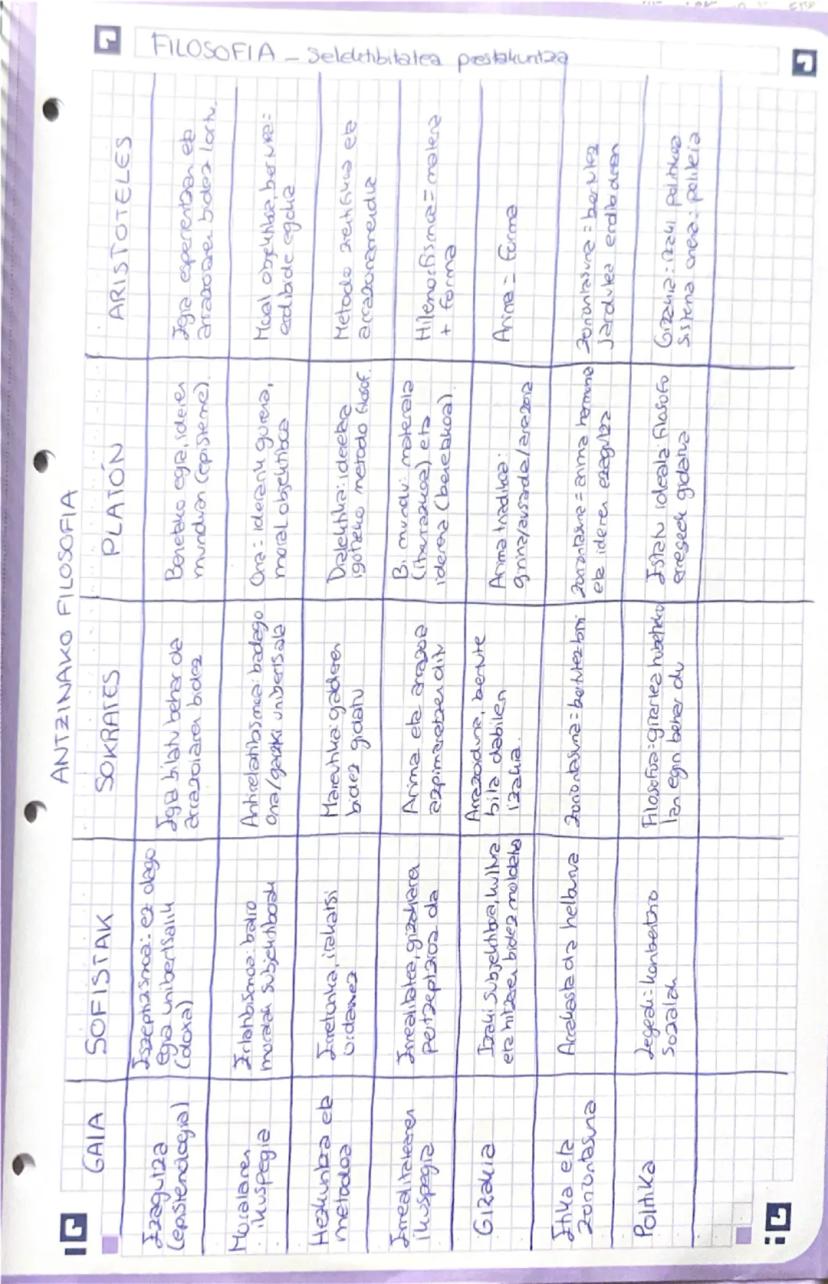 FILOSOFIA - Selektibitatea prestakuntza
ANTZINAKO FILOSOFIA
GAIA SOFISTAK SOKRATES PLATÓN ARISTOTELES
Ezagutza
(epistemologia)
Eszeptizismoa: ez dago
egia unibertsalik
(doxa)
Egia bilatu behar da
arrazoiaren bidez
Benetako egia, ideien
munduan (episteme).
Egia esperientzian eta
arrazoiaren bidez lortu.
Moralaren
ikuspegia
Erlatibismoa: balio
moralak subjektiboak
Antierlatibismoa: badago
ona/gaizki unibertsala
Ona = ideiarik gorena,
moral objektiboa
Moral objektiboa bertutea:
erdibide egokia
Hezkuntza eta
metodoa
Erretorika, irakatsi
ordainez
Maieutika galderen
bidez gidatu
Dialektika: ideietara
igotzeko metodo filosof.
Metodo zientifikoa eta
arrazonamendua
Errealitatearen
ikuspegia
Errealitatea, gizakiaren
pertzepzioa da
Arima eta arrazoia
azpimarratzen ditu
Bi mundu: materiala
(itxurazkoa) eta
ideiena (benetakoa).
Hilemorfismoa = materia
+ forma
Gizakia
Izaki subjektiboa, kultura
eta hitzaren bidez moldatua
Arrazoiduna, bertute
bila dabilen
izakia.
Arima hirukoa:
grina/ausardia/arrazoia
Arima = forma
Etika eta
zoriontasuna
Arrakasta da helburua
Zoriontasuna = bertutez bizi
Zoriontasuna = arima harmonia
eta ideien ezagutza
Zoriontasuna = bertutez
jardutea erdibidean
Politika
Legeak: konbentzio
sozialak
Filosofoa = gizartea hobetzeko
lan egin behar du
Estatu ideala filosofo
erregeek gidatua
Gizakia: izaki politikoa
Sistema onena: politeia